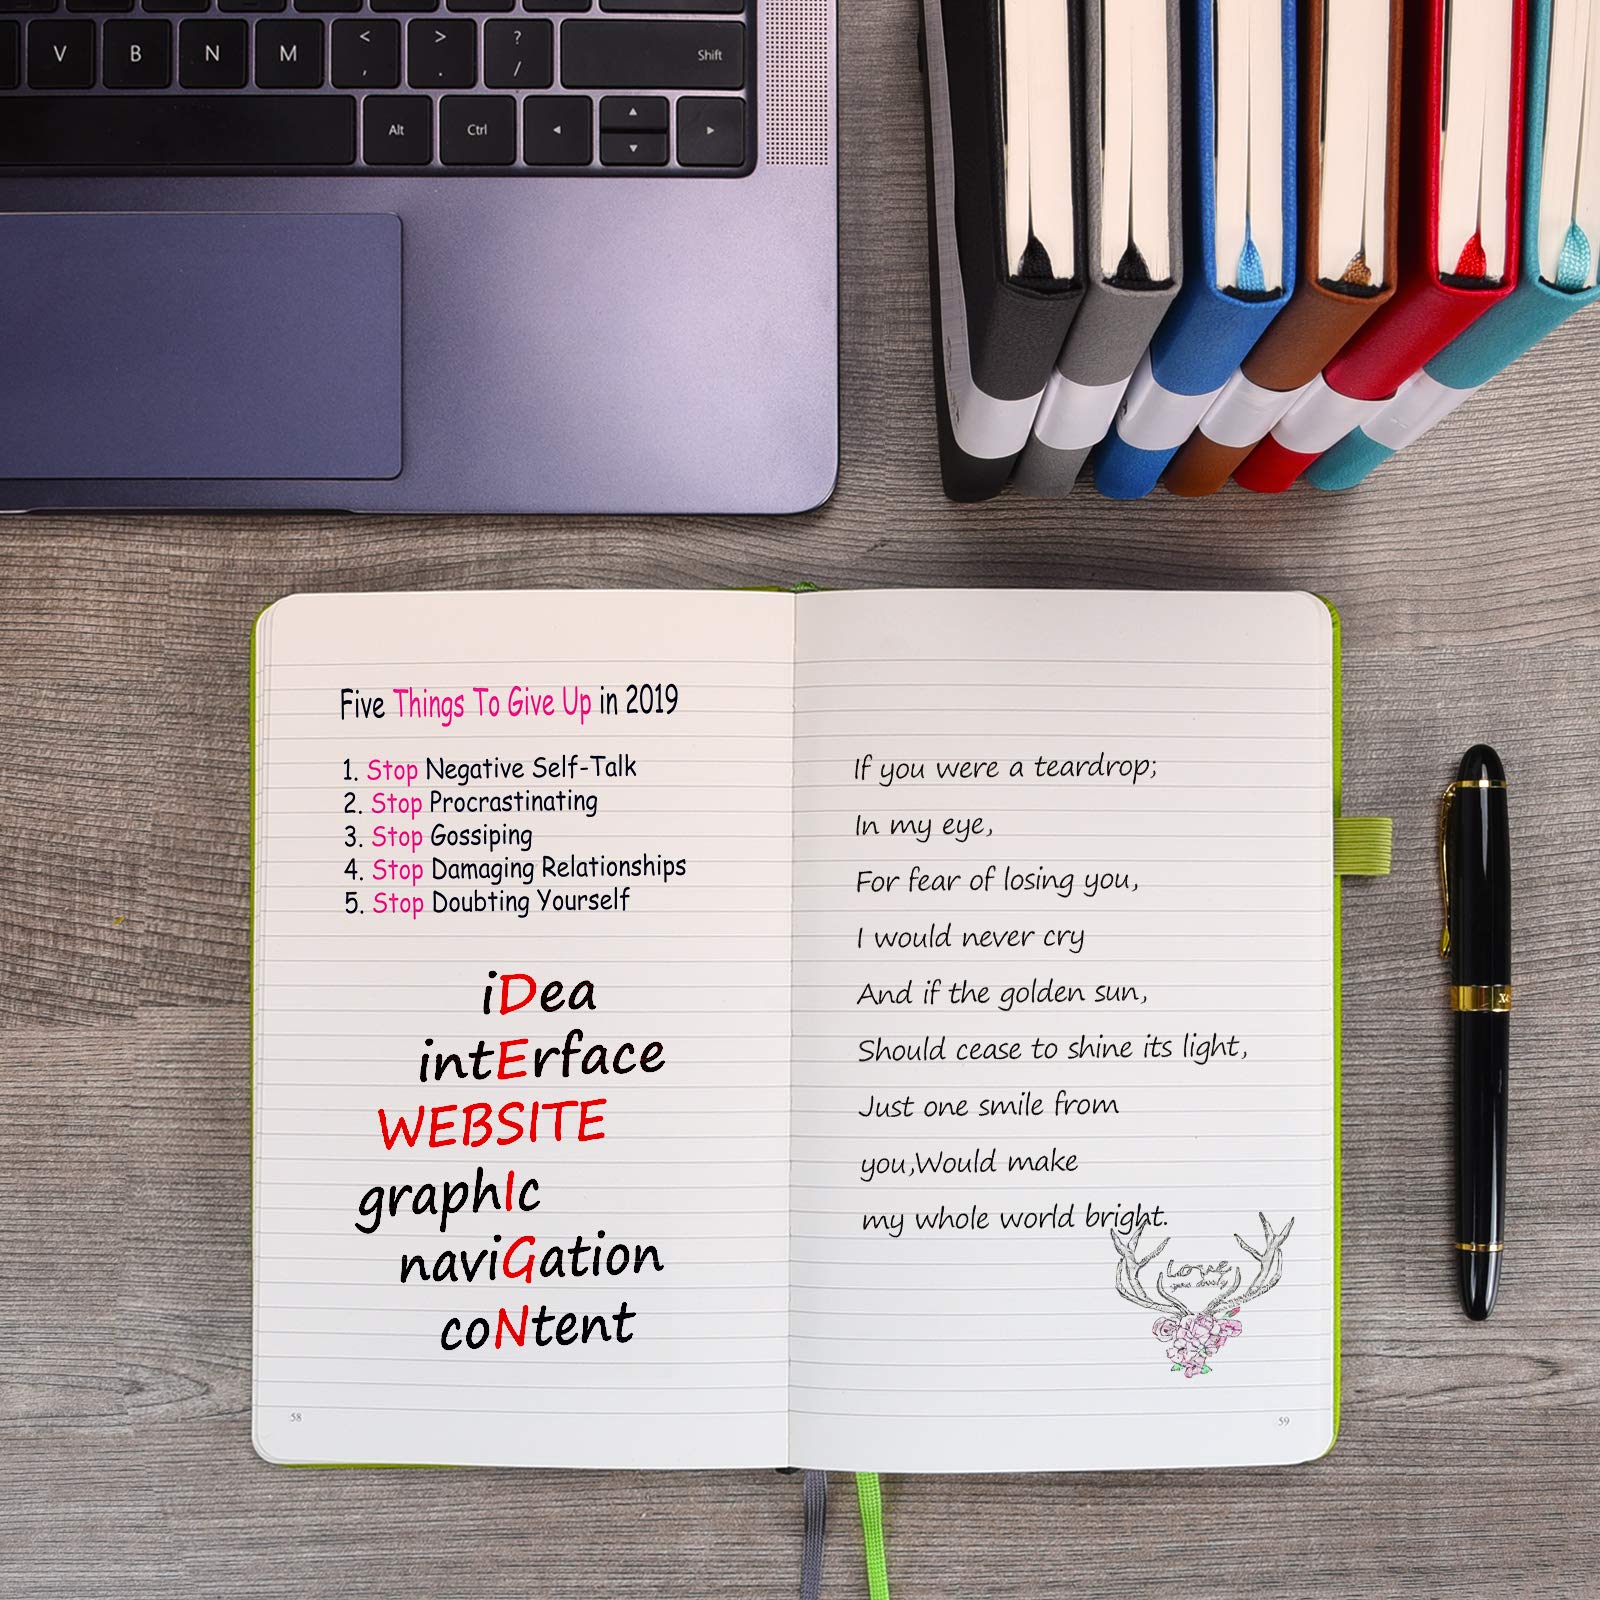 V B N M < , > . ? / Shift
Alt Ctrl
Five Things To Give Up in 2019
1. Stop Negative Self-Talk
2. Stop Procrastinating
3. Stop Gossiping
4. Stop Damaging Relationships
5. Stop Doubting Yourself
iDea
intErface
WEBSITE
graphIc
naviGation
coNtent
58
If you were a teardrop;
In my eye,
For fear of losing you,
I would never cry
And if the golden sun,
Should cease to shine its light,
Just one smile from
you,Would make
my whole world bright.
Love
59